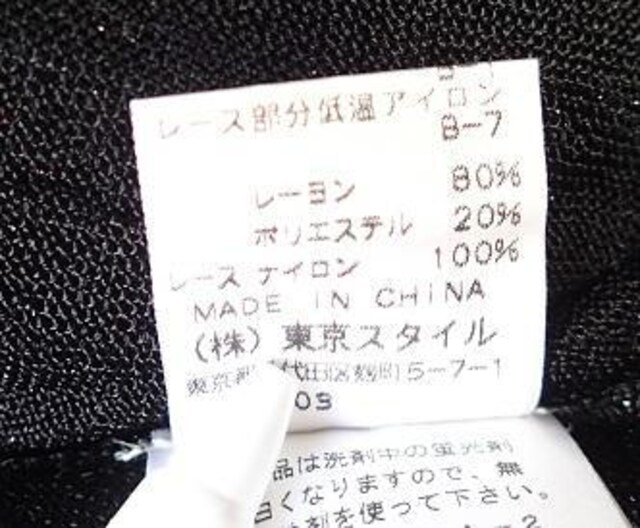 レース部分低温アイロン
B-7
レーヨン 80%
ポリエステル 20%
レース ナイロン 100%
MADE IN CHINA
(株) 東京スタイル
東京都 代田区麹町5-7-1
03
品は洗剤中の蛍光剤
白くなりますので、無
剤を使って下さい。